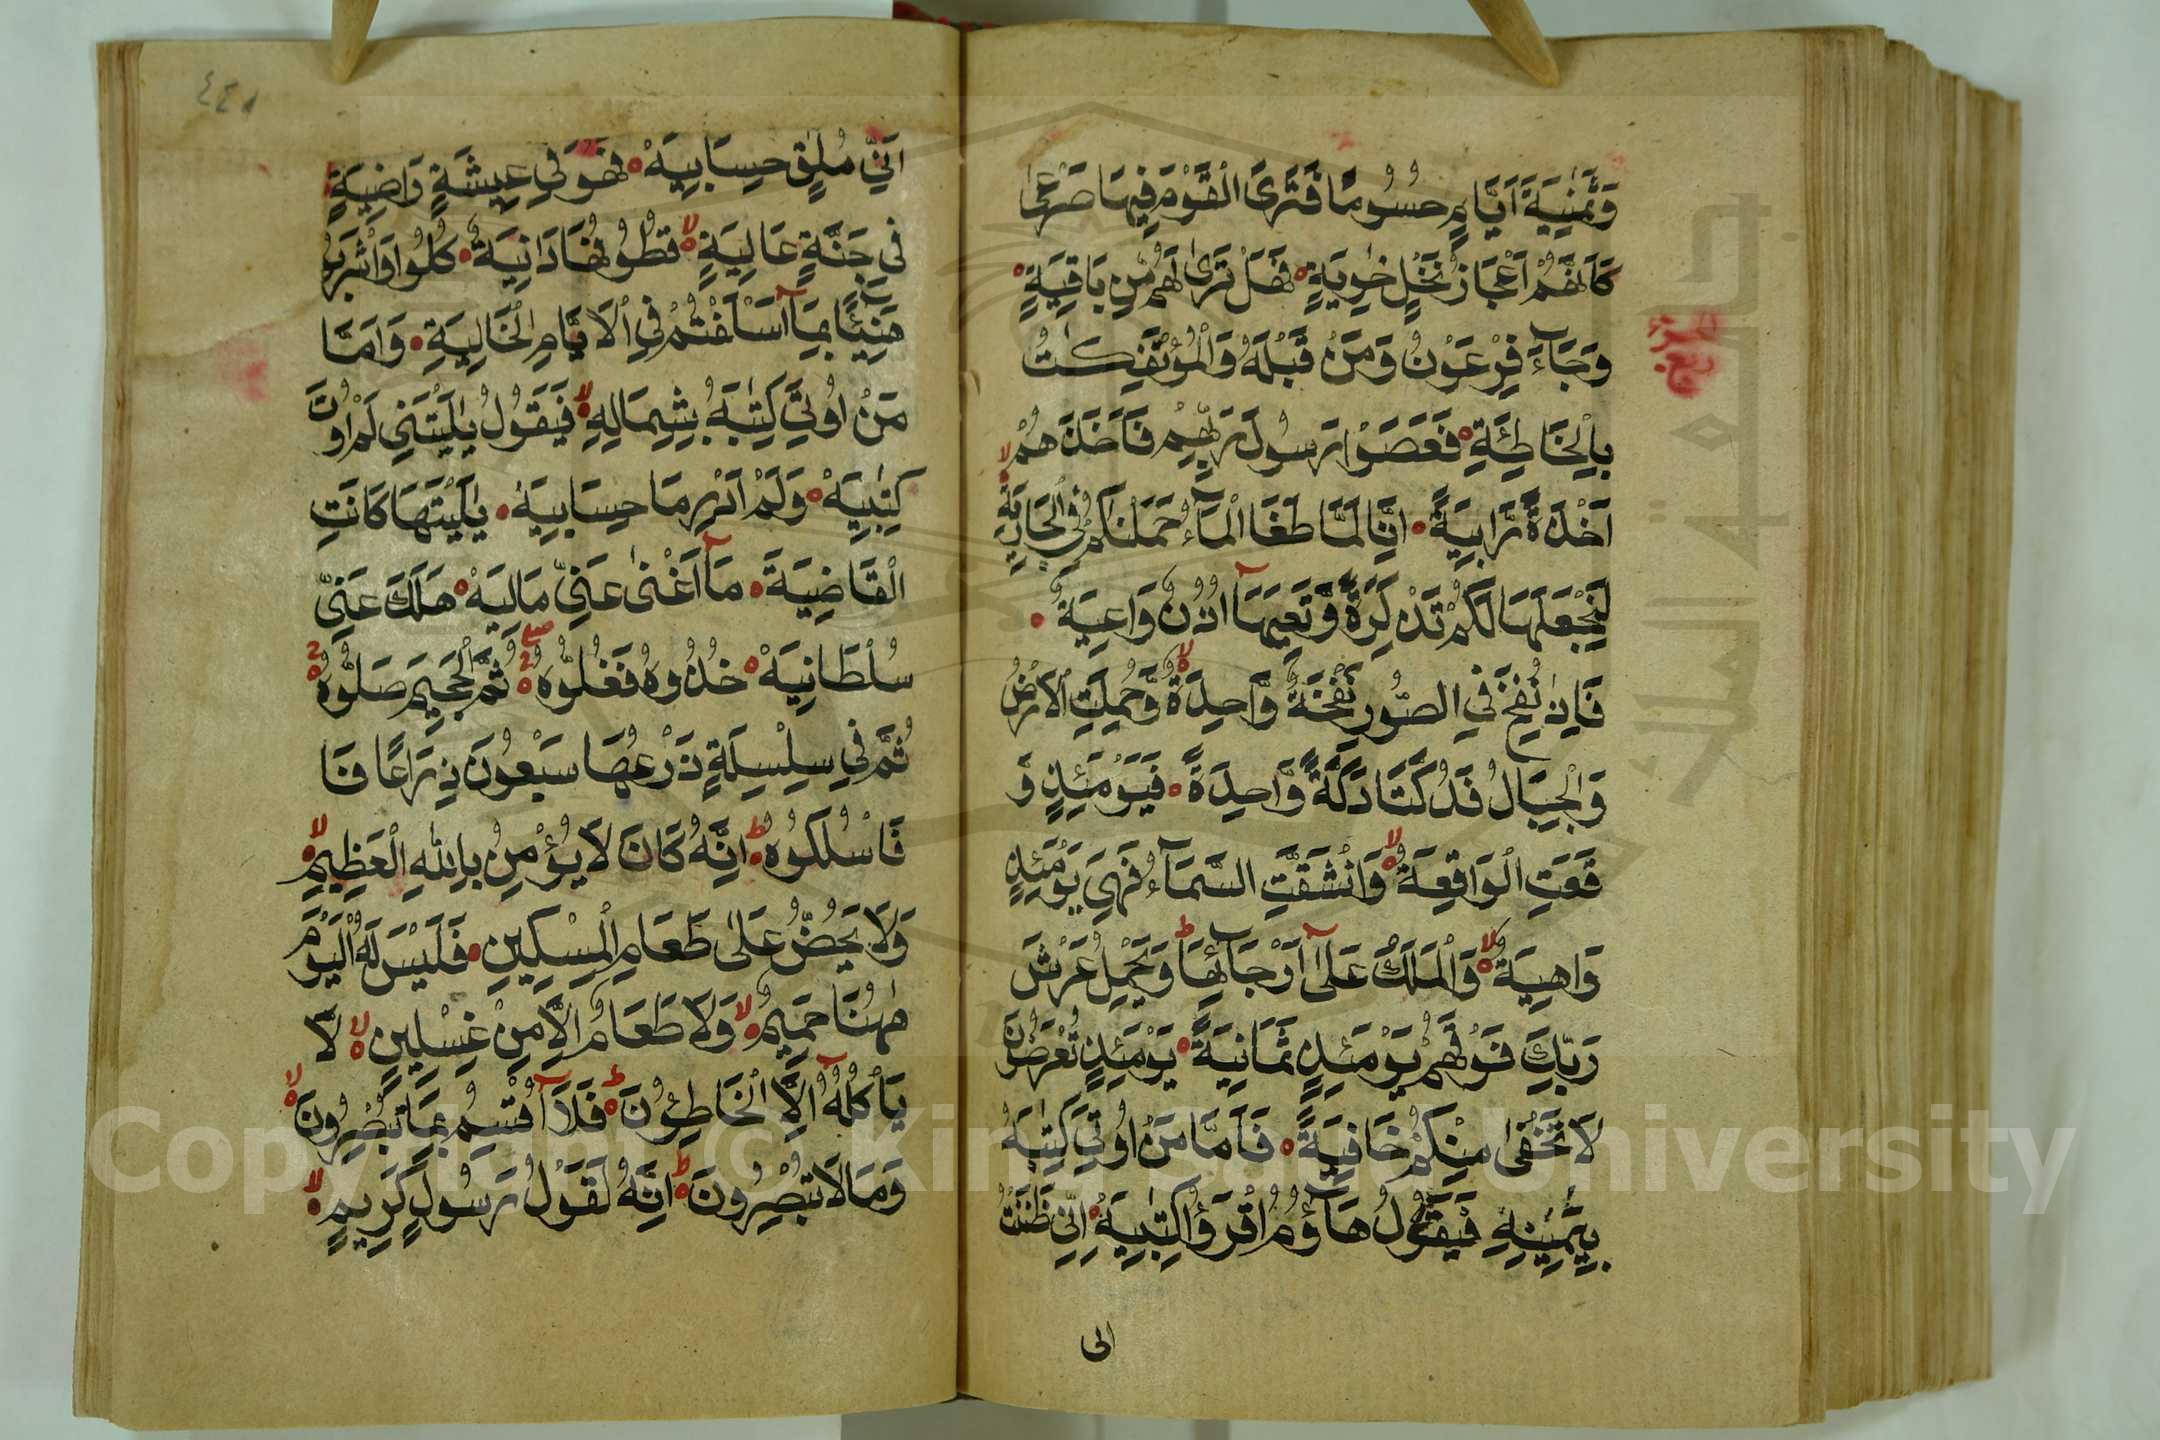 وَثَمٰنِيَةَ اَيَّامٍ حُسُومًا فَتَرَى الْقَوْمَ فِيهَا صَرْعٰى
كَاَنَّهُمْ اَعْجَازُ نَخْلٍ خَاوِيَةٍ فَهَلْ تَرٰى لَهُمْ مِنْ بَاقِيَةٍ
وَجَآءَ فِرْعَوْنُ وَمَنْ قَبْلَهُ وَالْمُؤْتَفِكٰتُ
بِالْخَاطِئَةِ فَعَصَوْا رَسُولَ رَبِّهِمْ فَاَخَذَهُمْ
اَخْذَةً رَّابِيَةً اِنَّا لَمَّا طَغَا الْمَآءُ حَمَلْنٰكُمْ فِي الْجَارِيَةِ
لِنَجْعَلَهَا لَكُمْ تَذْكِرَةً وَّتَعِيَهَآ اُذُنٌ وَاعِيَةٌ
فَاِذَا نُفِخَ فِي الصُّورِ نَفْخَةٌ وَّاحِدَةٌ وَّحُمِلَتِ الْاَرْضُ
وَالْجِبَالُ فَدُكَّتَا دَكَّةً وَّاحِدَةً فَيَوْمَئِذٍ وَ
قَعَتِ الْوَاقِعَةُ وَانْشَقَّتِ السَّمَآءُ فَهِيَ يَوْمَئِذٍ
وَاهِيَةٌ وَالْمَلَكُ عَلٰىٓ اَرْجَآئِهَا وَيَحْمِلُ عَرْشَ
رَبِّكَ فَوْقَهُمْ يَوْمَئِذٍ ثَمَانِيَةٌ يَوْمَئِذٍ تُعْرَضُونَ
لَا تَخْفٰى مِنْكُمْ خَافِيَةٌ فَاَمَّا مَنْ اُوتِيَ كِتٰبَهُ
بِيَمِينِهِ فَيَقُولُ هَآؤُمُ اقْرَؤُا كِتٰبِيَهْ اِنِّي ظَنَنْتُ
انى
٤٤٨
اَنِّي مُلٰقٍ حِسَابِيَهْ فَهُوَ فِي عِيشَةٍ رَاضِيَةٍ
فِي جَنَّةٍ عَالِيَةٍ قُطُوفُهَا دَانِيَةٌ كُلُوا وَاشْرَبُوا
هَنِيئًا بِمَآ اَسْلَفْتُمْ فِي الْاَيَّامِ الْخَالِيَةِ وَاَمَّا
مَنْ اُوتِيَ كِتٰبَهُ بِشِمَالِهِ فَيَقُولُ يٰلَيْتَنِي لَمْ اُوتَ
كِتٰبِيَهْ وَلَمْ اَدْرِ مَا حِسَابِيَهْ يٰلَيْتَهَا كَانَتِ
الْقَاضِيَةَ مَآ اَغْنٰى عَنِّي مَالِيَهْ هَلَكَ عَنِّي
سُلْطَانِيَهْ خُذُوهُ فَغُلُّوهُ ثُمَّ الْجَحِيمَ صَلُّوهُ
ثُمَّ فِي سِلْسِلَةٍ ذَرْعُهَا سَبْعُونَ ذِرَاعًا فَا
فَاسْلُكُوهُ اِنَّهُ كَانَ لَا يُؤْمِنُ بِاللّٰهِ الْعَظِيمِ
وَلَا يَحُضُّ عَلٰى طَعَامِ الْمِسْكِينِ فَلَيْسَ لَهُ الْيَوْمَ
هٰهُنَا حَمِيمٌ وَلَا طَعَامٌ اِلَّا مِنْ غِسْلِينٍ لَا
يَاْكُلُهُٓ اِلَّا الْخَاطِؤُنَ فَلَآ اُقْسِمُ بِمَا تُبْصِرُونَ
وَمَا لَا تُبْصِرُونَ اِنَّهُ لَقَوْلُ رَسُولٍ كَرِيمٍ
Copyright © King Saud University